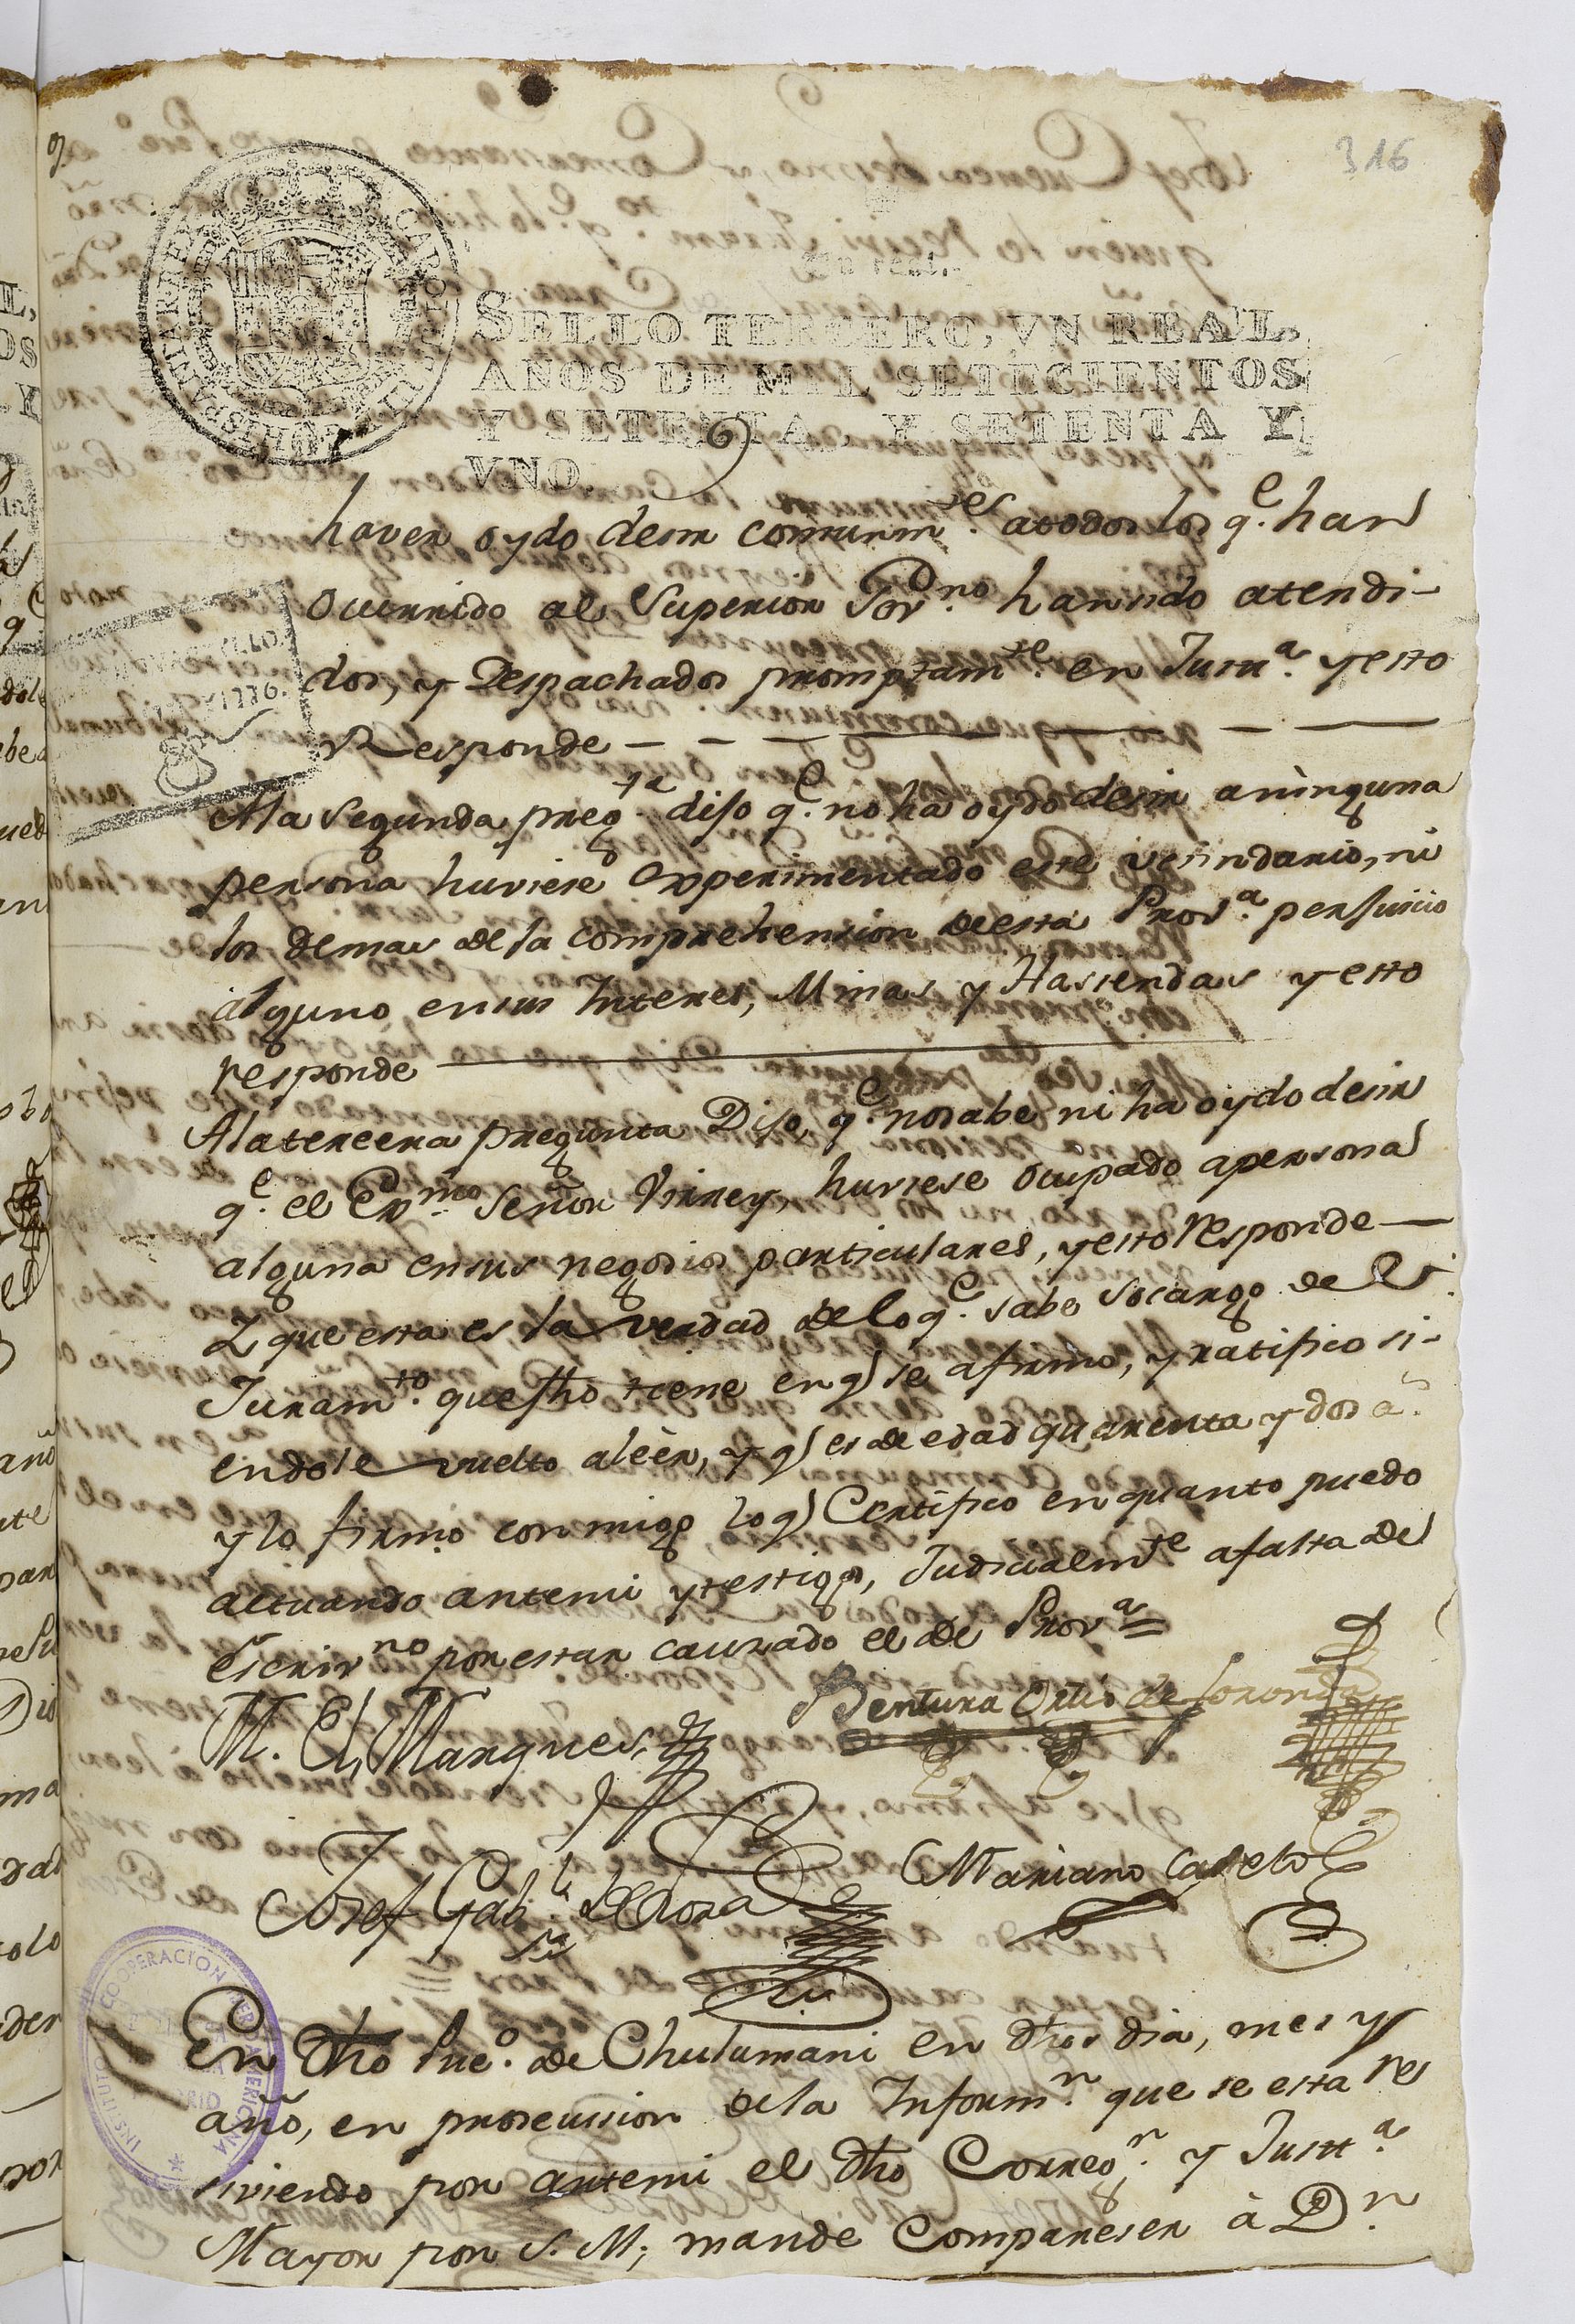 316
Un real.
SELLO TERCERO, VN REAL,
AÑOS DE MIL SETECIENTOS
Y SETENTA, Y SETENTA Y
VNO.
haver oydo desir comunmtes. atodos los qe. han
ocurrido al Superior Govno. han sido atendi-
dos, y Despachados promptamte. en Justa. y esto
Responde
Ala segunda pregta. dijo qe. no ha oydo desir aninguna
persona huviese experimentado este vesindario, ni
los demas de la comprehension de esta Prova. perjuicio
alguno en sus Interes, Minas y Hasiendas y esto
responde
Ala tercera pregunta Dijo, qe. no sabe, ni ha oydo desir
qe. el Exmo. Señor Virrey, huviese ocupado apersona
alguna en sus negosios particulares, y esto responde
Y que esta es la verdad de lo qe. sabe socargo de el
Juramto. que fho tiene en q se afirmo, y ratifico si-
endole vuelto aleèr, y q es de edad quarenta y dos as.
y lo firmo conmigo lo q Certifico en quanto puedo
actuando antemi y testigos, Judicialmte afalta de
escrivno por estar causado el de Prova
M. El Marques
Bentura Ortis de
Josef Gabl. de
Mariano
En dho Pueo. de Chulumani en dhos dia, mes y
año, en prosecusion de la Informn. que se esta res
siviendo por antemi el dho Corregr. y Justta.
Mayor por S. M; mande Compareser à Dn.
INSTITUTO COOPERACION IBEROAMERICANA